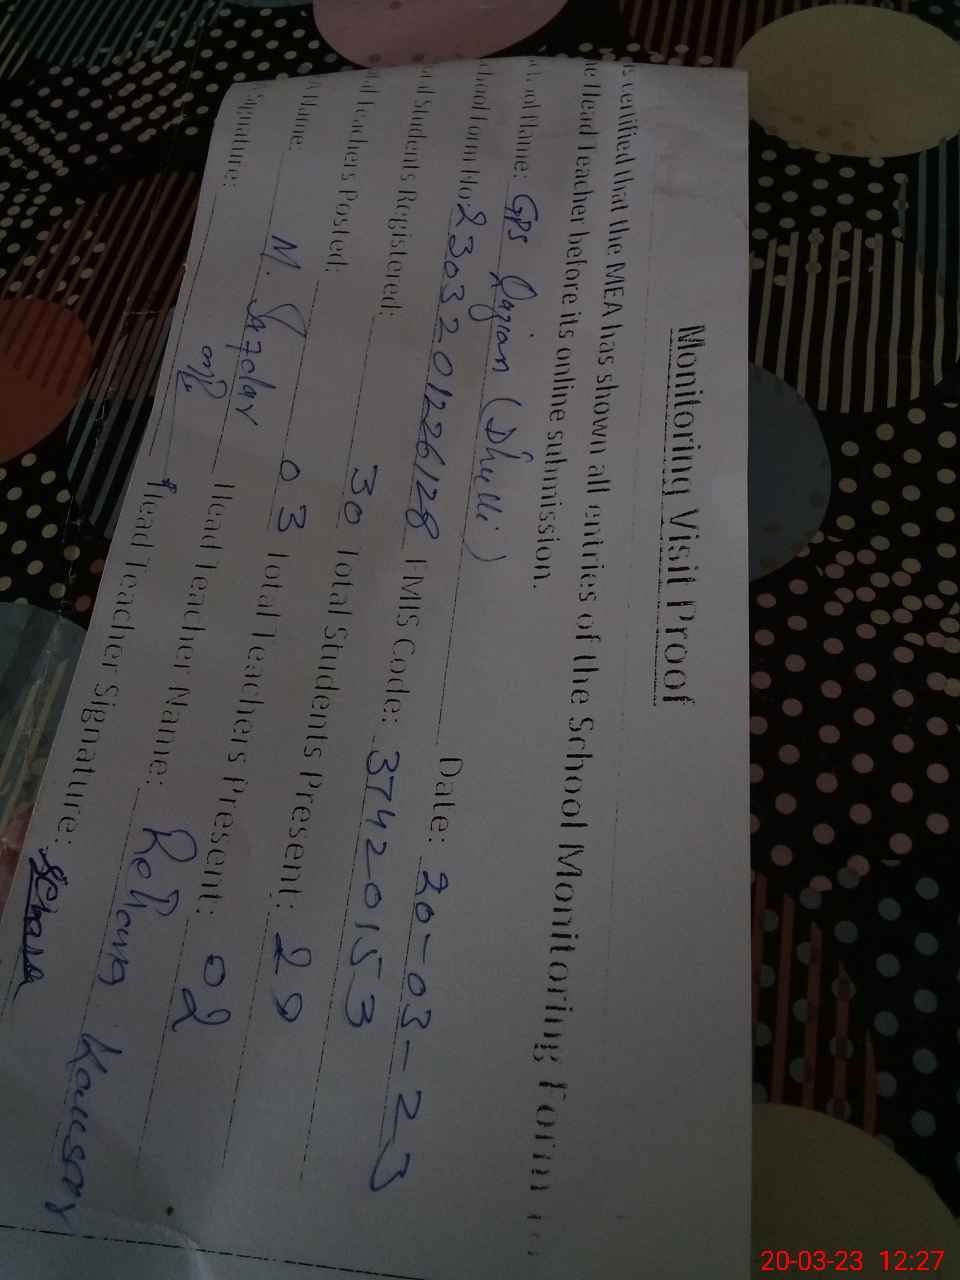 Monitoring Visit Proof
is certified that the MEA has shown all entries of the School Monitoring Form
e Head Teacher before its online submission.
chool Name: GPS (Dhulli) Date: 20-03-23
chool Form No. 23032 01226128 EMIS Code: 37420153
tal Students Registered: 30 Total Students Present: 28
tal Teachers Posted: 03 Total Teachers Present: 02
Name: M. Safdar Head Teacher Name: Rehana Kousar
Signature: Head Teacher Signature:
20-03-23 12:27